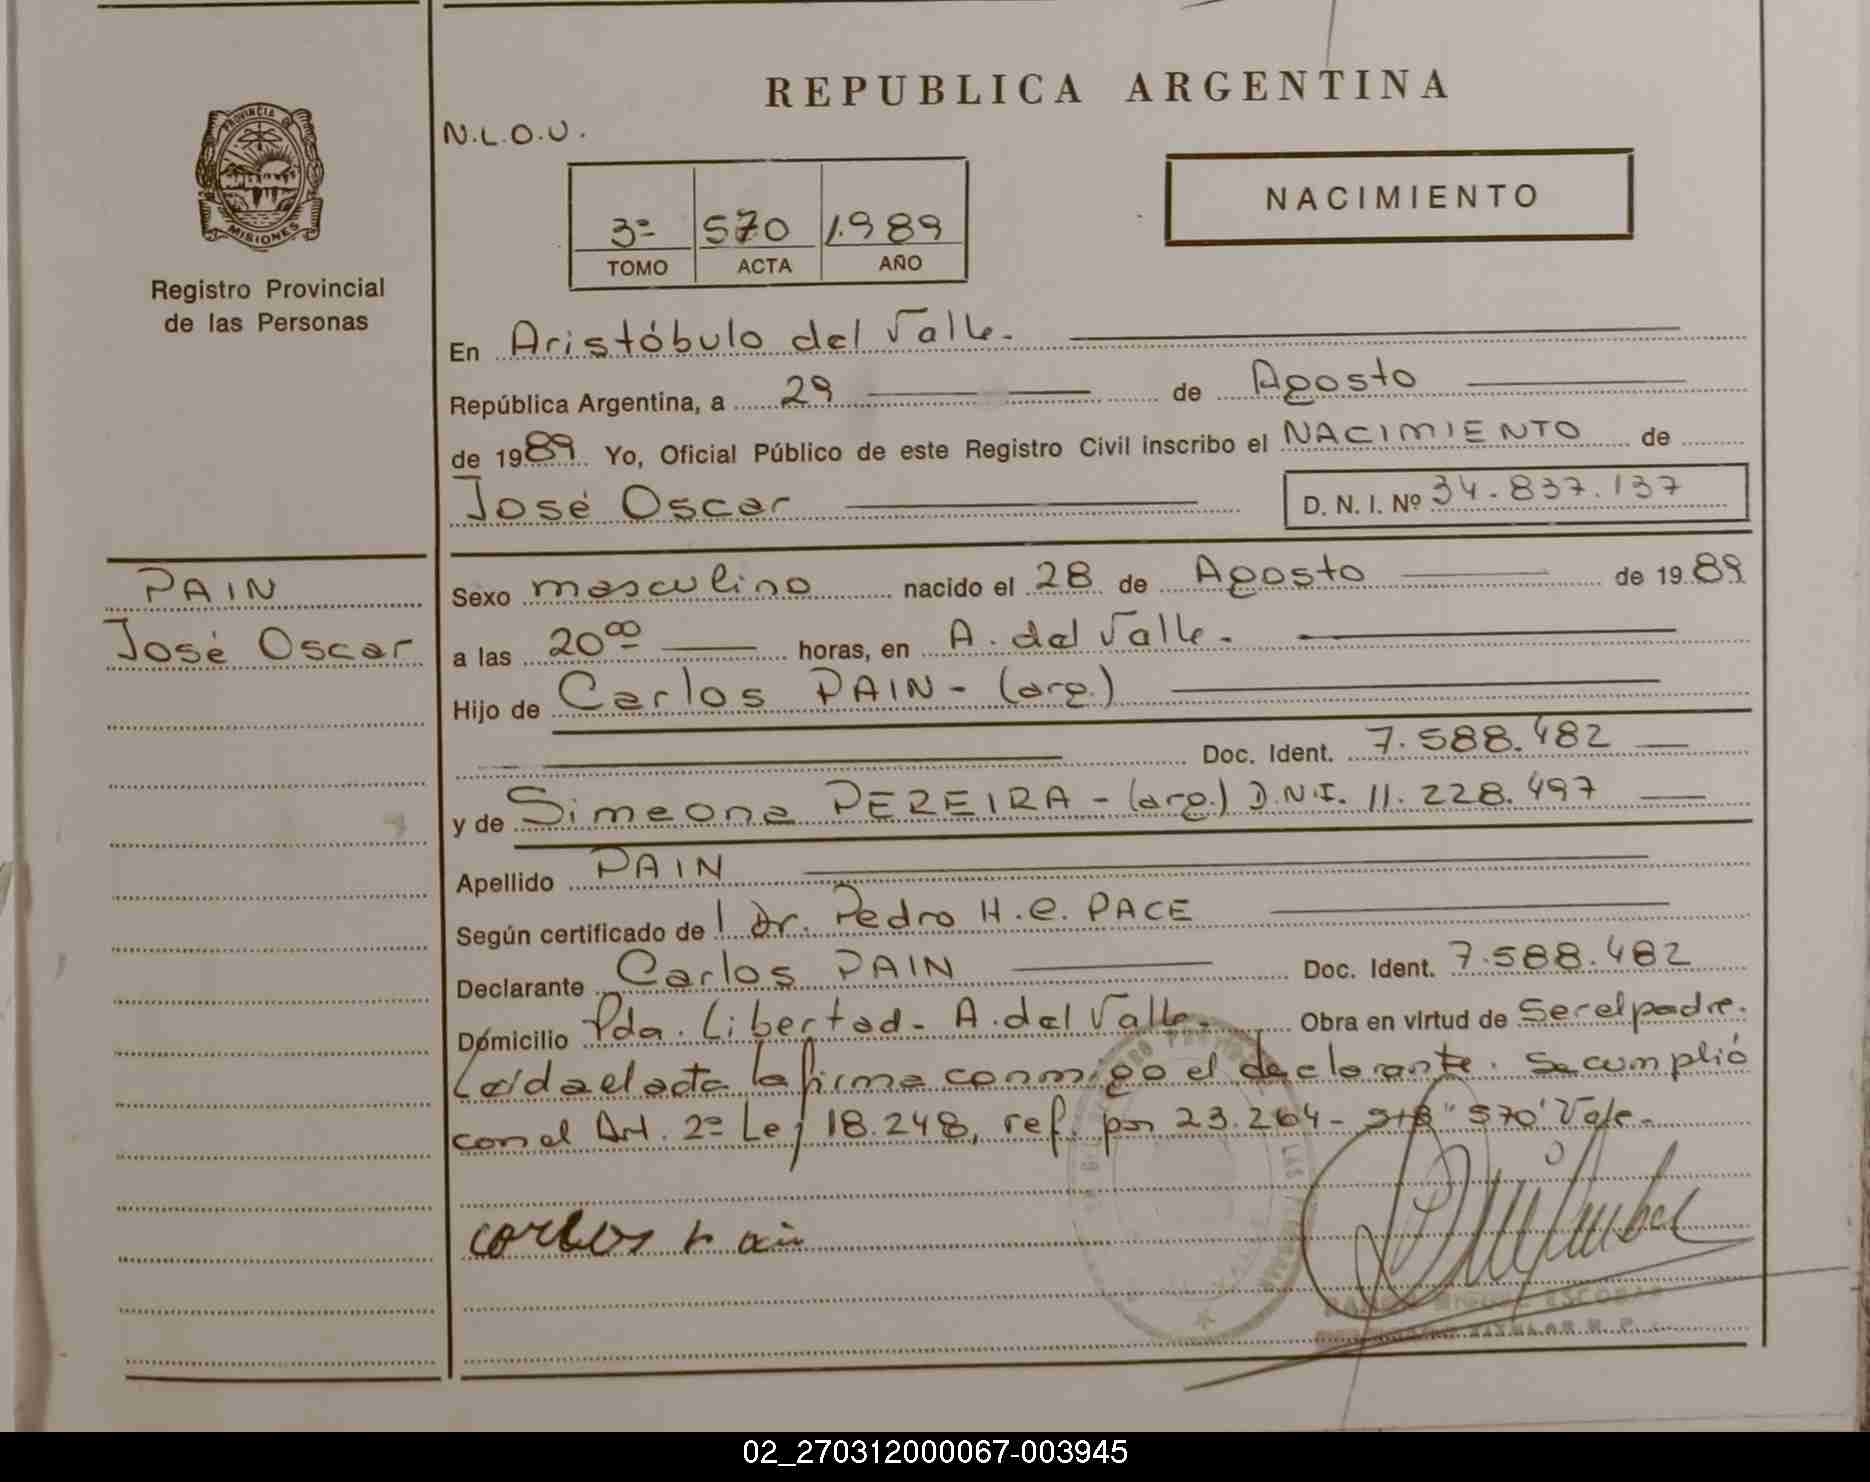 REPUBLICA ARGENTINA
PROVINCIA DE
MISIONES
Registro Provincial
de las Personas
N.L.O.U.
3º 570 1.989
TOMO ACTA AÑO
NACIMIENTO
En Aristóbulo del Valle.
República Argentina, a 29 de Agosto
de 1989 Yo, Oficial Público de este Registro Civil inscribo el NACIMIENTO de
José Oscar D. N. I. Nº 34.837.137
PAIN
José Oscar
Sexo masculino nacido el 28 de Agosto de 1989
a las 20⁰⁰ horas, en A. del Valle.
Hijo de Carlos PAIN - (arg.)
Doc. Ident. 7.588.482
y de Simeona PEREIRA - (arg.) D.N.I. 11.228.497
Apellido PAIN
Según certificado del Dr. Pedro H.C. PACE
Declarante Carlos PAIN Doc. Ident. 7.588.482
Domicilio Pda. Libertad - A. del Valle. Obra en virtud de ser el padre.
Leída el acta la firma conmigo el declarante. Se cumplió
con el Art. 2º Ley 18.248, ref. por 23.264 - S/B "570" Vale.
carlos pain
ESCOBAR
TITULAR R. P.
02_270312000067-003945